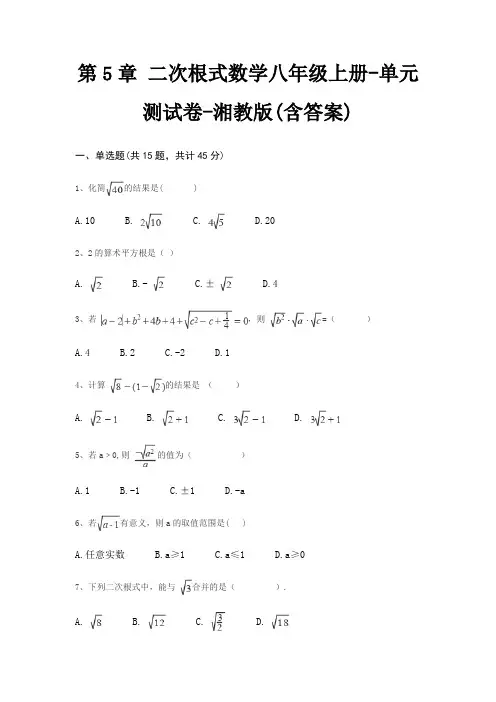 第5章 二次根式数学八年级上册-单元
测试卷-湘教版(含答案)
一、单选题(共15题，共计45分)
1、化简√40的结果是( )
A.10 B. 2√10 C. 4√5 D.20
2、2的算术平方根是（ ）
A. √2 B.- √2 C.± √2 D.4
3、若 |a-2|+b²+4b+4+√(c²-c+1/4)=0，则 √b²·√a·√c=（ ）
A.4 B.2 C.-2 D.1
4、计算 √8-(1-√2)的结果是 （ ）
A. √2-1 B. √2+1 C. 3√2-1 D. 3√2+1
5、若a﹥0,则 -√a²/a 的值为（ ）
A.1 B.-1 C.±1 D.-a
6、若√a-1有意义，则a的取值范围是( )
A.任意实数 B.a≥1 C.a≤1 D.a≥0
7、下列二次根式中，能与 √3合并的是（ ）.
A. √8 B. √12 C. √(3/2) D. √18